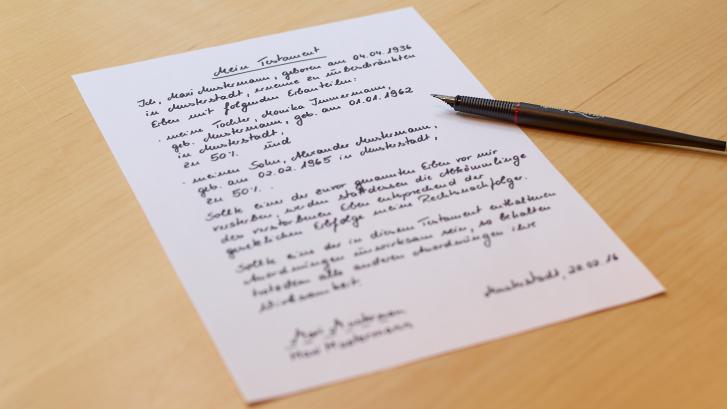 Mein Testament
Ich, Maxi Mustermann, geboren am 04.04.1936
in Musterstadt, ernenne zu unbeschränkten
Erben mit folgenden Erbanteilen:
· meine Tochter, Monika Immermann,
geb. Mustermann, geb. am 01.01.1962
in Musterstadt,
zu 50% und
· meinen Sohn, Alexander Mustermann,
geb. am 02.02.1965 in Musterstadt,
zu 50%.
Sollte eine der zuvor genannten Erben vor mir
versterben, werden stattdessen die Abkömmlinge
des verstorbenen Erben entsprechend der
gesetzlichen Erbfolge meine Rechtsnachfolger.
Sollte eine der in diesem Testament enthaltenen
Anordnungen unwirksam sein, so behalten
trotzdem alle anderen Anordnungen ihre
Wirksamkeit.
Musterstadt, 28.02.16
Maxi Mustermann
Maxi Mustermann